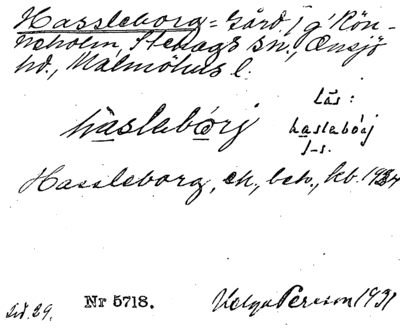 Hassleborg = Gård / g! Rön-
neholm, Stehags sn., Onsjö
hd., Malmöhus l.
Läs:
haslebårj
haslebårj
J-s.
Hassleborg, ek., beb., kb. 1934
Nr 5718.
Helga Persson 1931